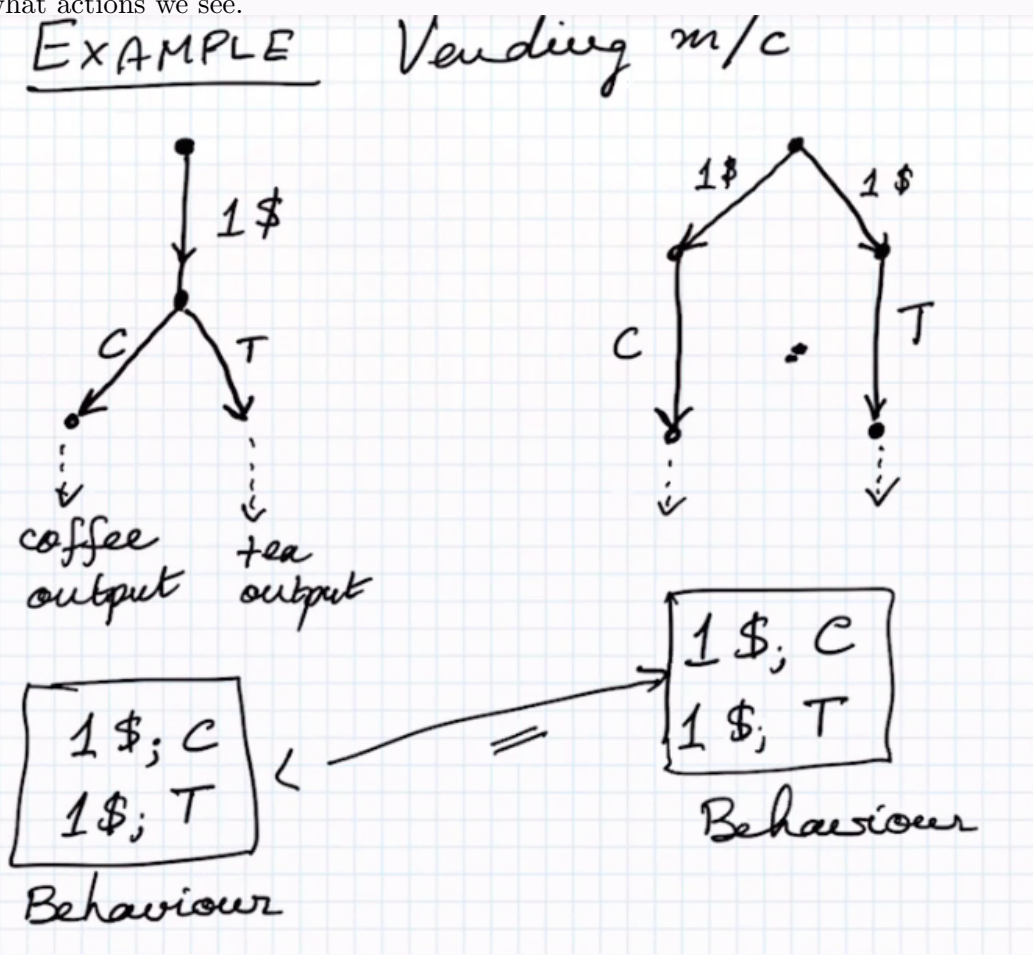 what actions we see.
EXAMPLE Vending m/c
1$
C T
coffee output
tea output
1$ 1$
C T
1$; C
1$; T
Behaviour
=
1$; C
1$; T
Behaviour